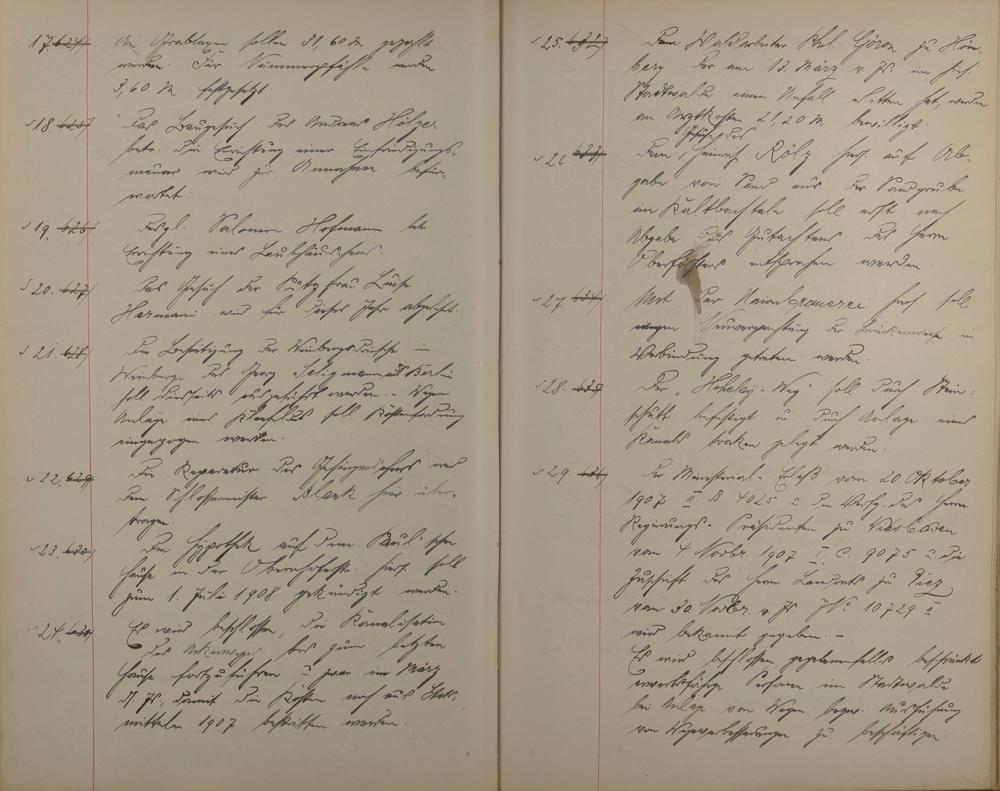 17. 624/ An Grablagen sollen 31,60 M gezahlt
werden. Für Nummerpfähle werden
3,60 M festgesetzt.
18. 625/ Das Baugesuch des Andreas Hölzer
betr. die Errichtung einer Einfriedigungs-
mauer wird zur Annahme befür-
wortet.
19. 626/ Desgl. Salomon Hofmann betr.
Errichtung eines Laubhäuschens.
20. 627/ Das Gesuch der Putzfrau Luise
Hermani wird für dieses Jahr abgelehnt.
21. 628/ Die Beseitigung der Weinbergs
Weinberge des Georg Seligmann Berlin
soll diesseits ausgeführt werden. - Wegen
Anlage eines soll Kostenforderung
eingezogen werden.
22. 629/ Die Reparatur des wird
dem Schlossermeister Blank hier über-
tragen.
23. 630/ Die Hypothek auf dem Paul'schen
Hause in der hies. soll
zum 1. Juli 1908 gekündigt werden.
24. 631/ Es wird beschlossen, die Kanalisation
des bis zum letzten
Hause fortzuführen u. zwar im März
d. Js., damit die Kosten noch aus Etats-
mitteln 1907 bestritten werden.
25. 632/ Dem Waldarbeiter Phil. zu Hom-
berg der am 13. März v. Js. im hies.
Stadtwalde einen Unfall erlitten hat, werden
an Arztkosten 21,20 M bewilligt.
Gesuch des
26. 633/ Dem Heinrich Rölz hies. auf Ab-
gabe von Sand aus der Sandgrube
im Kaltbachtale soll erst nach
Abgabe des Gutachtens des Herrn
Oberförsters entsprochen werden.
27. 634/ Mit der brauerei hies. soll
wegen Neuverpachtung der Brückenwage in
Verbindung getreten werden.
28. 635/ Der "-Weg" soll durch Stein-
schutt befestigt u. durch Anlage eines
Kanals trocken gelegt werden.
29. 636/ Der Ministerial-Erlaß vom 20. Oktober
1907 II B. 4025 u. die Verfg. des Herrn
Regierungs-Präsidenten zu Wiesbaden
vom 4. Novbr. 1907 I. C. 9075 u. die
Zuschrift des Herrn Landrats zu Diez
vom 30. Novbr. v. Js. J No 10729 II
wird bekannt gegeben. -
Es wird beschlossen gegebenenfalls beschränkt
erwerbsfähige Personen im Stadtwalde
bei Anlage von Wegen bezw. Ausführung
von Wegeverbesserungen zu beschäftigen.